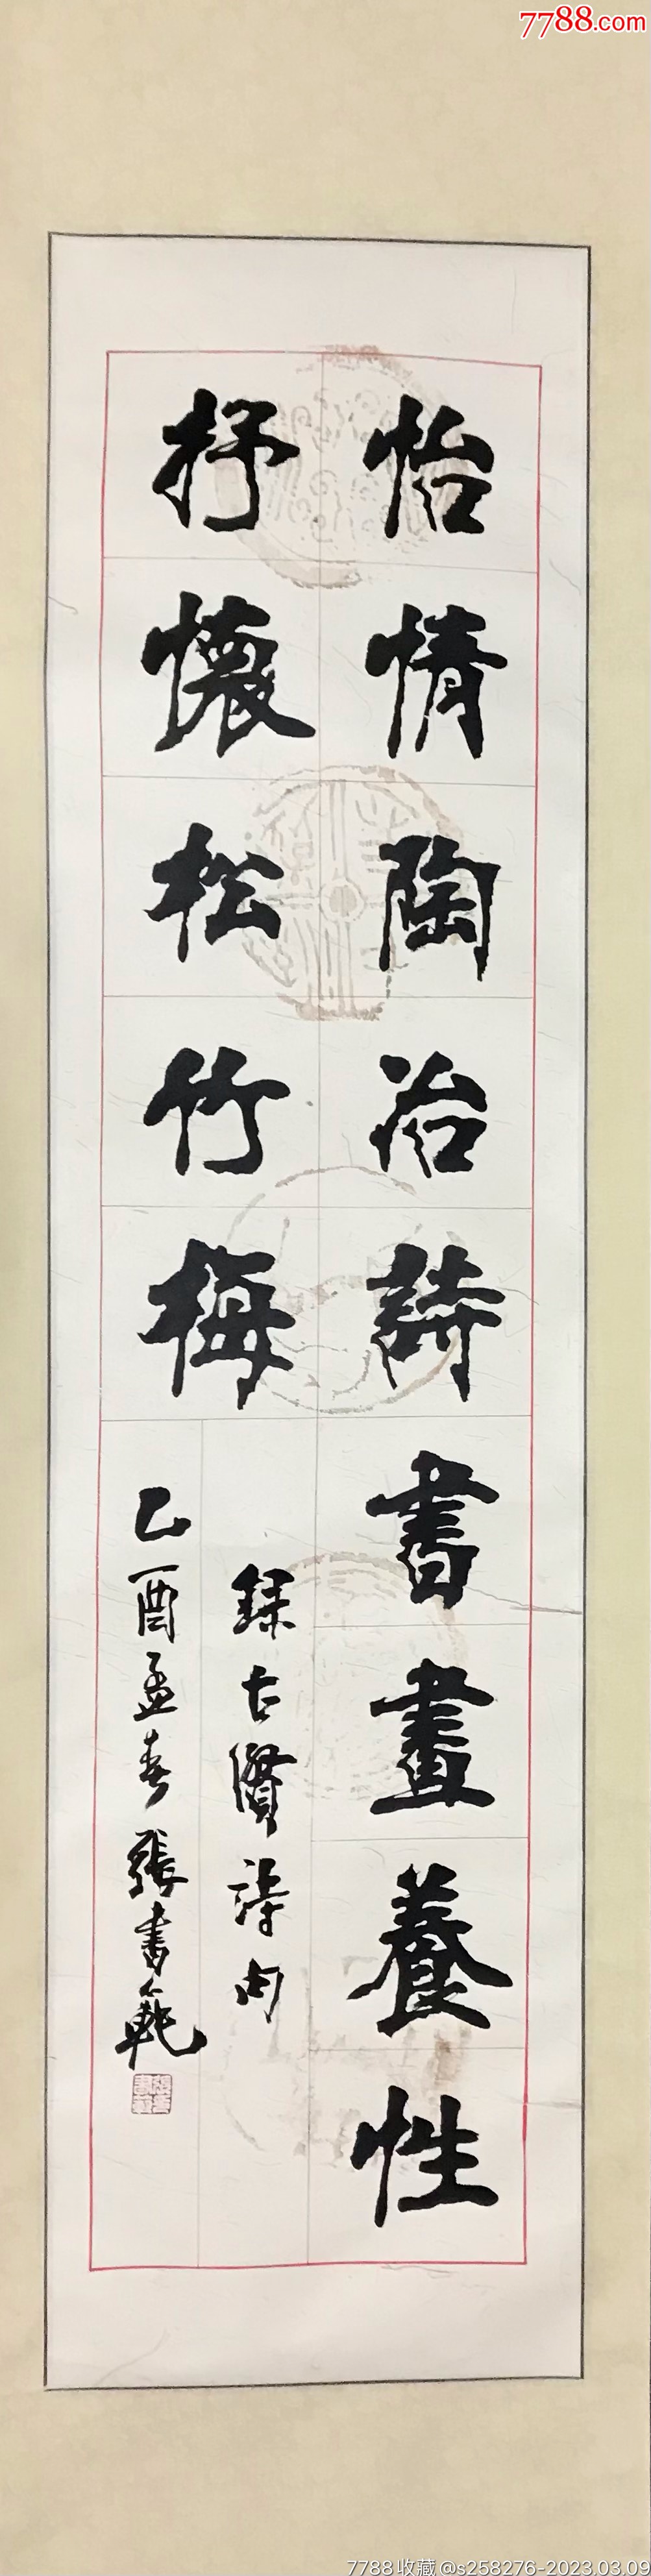 7788.com
怡情陶冶詩書畫養性
抒懷松竹梅
録古賢詩句
乙酉孟春張書範
7788收藏@s258276-2023.03.09